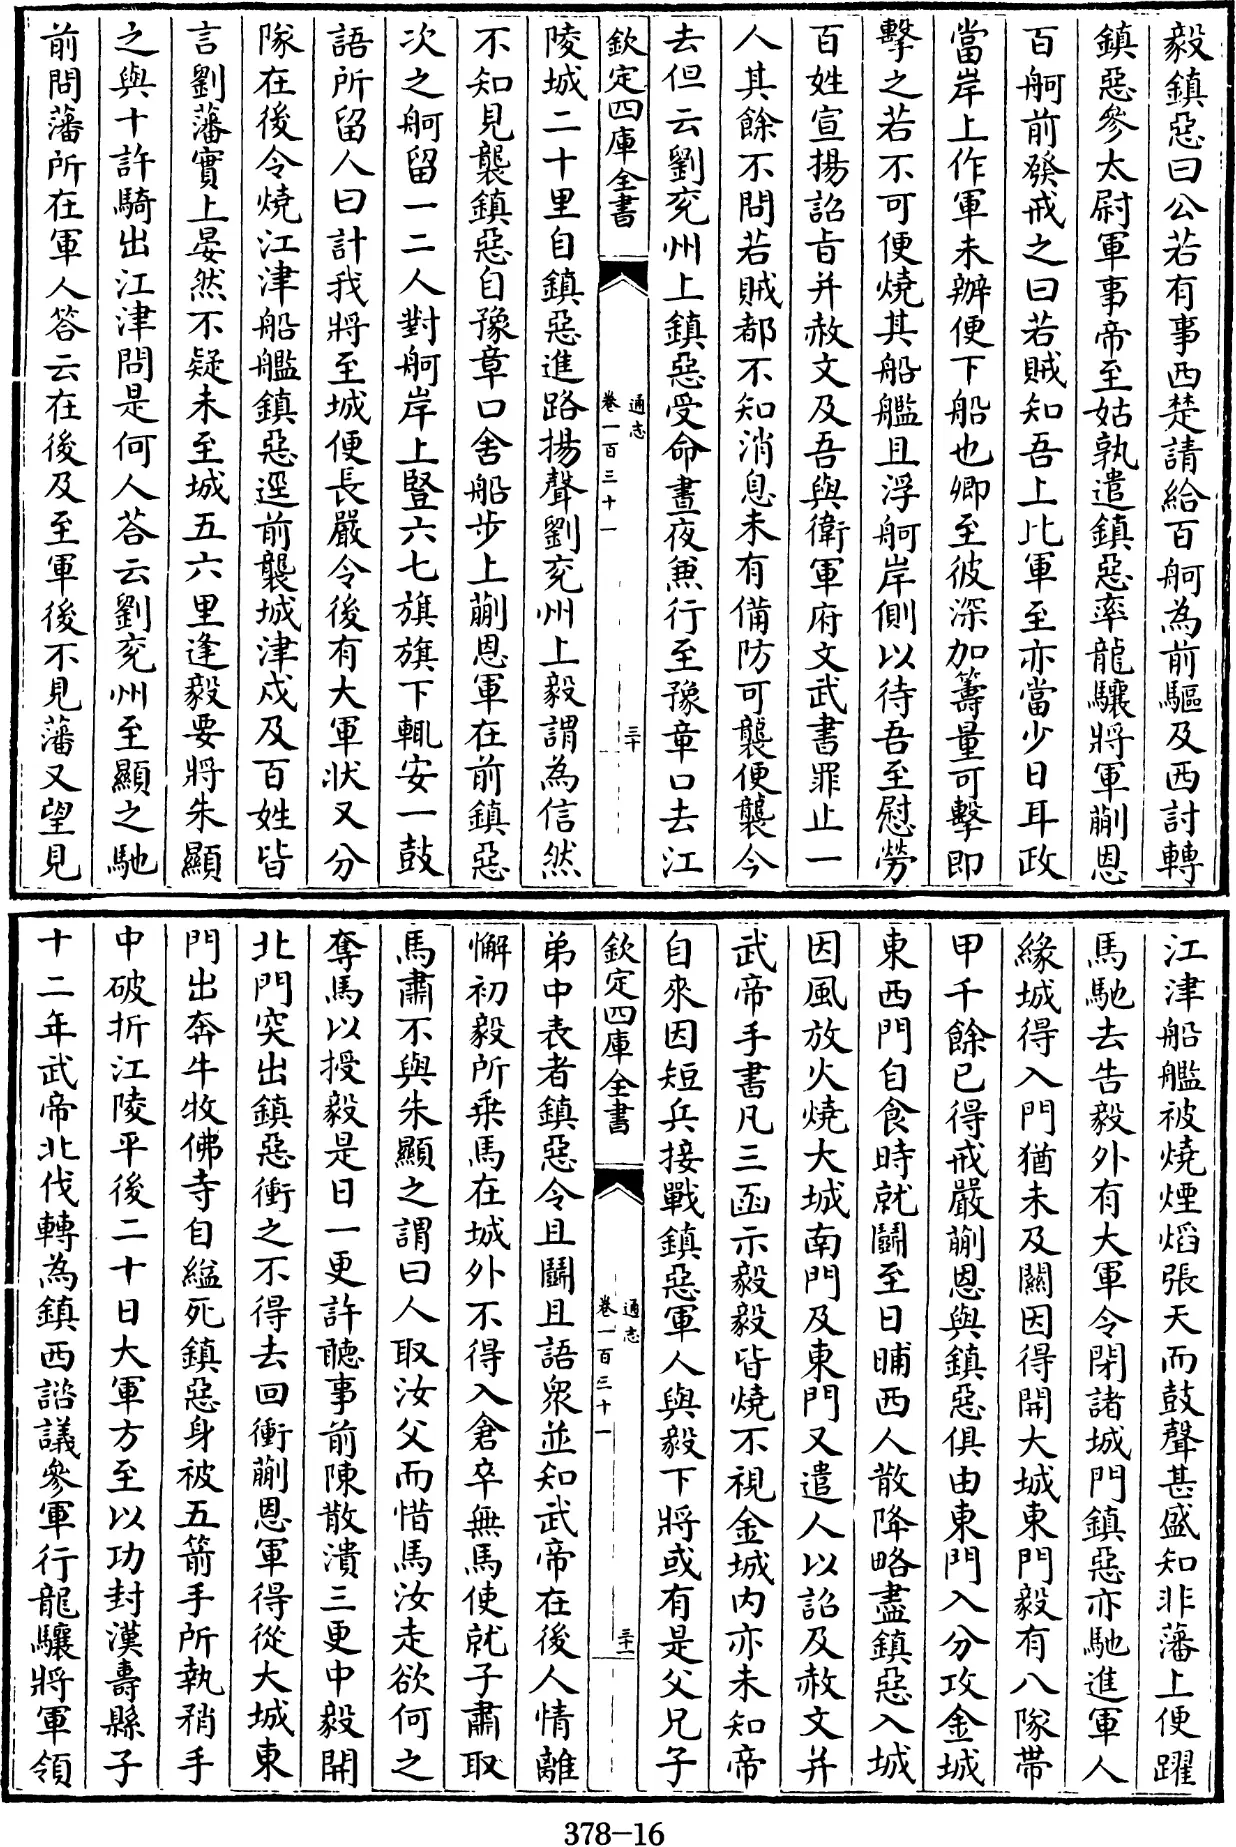 毅鎮惡曰公若有事西楚請給百舸為前驅及西討轉
鎮惡參太尉軍事帝至姑孰遣鎮惡率龍驤將軍蒯恩
百舸前發戒之曰若賊知吾上比軍至亦當少日耳政
當岸上作軍未辦便下船也卿至彼深加籌量可擊即
擊之若不可便燒其船艦且浮舸岸側以待吾至慰勞
百姓宣揚詔旨并赦文及吾與衛軍府文武書罪止一
人其餘不問若賊都不知消息未有備防可襲便襲今
去但云劉兖州上鎮惡受命晝夜兼行至豫章口去江
欽定四庫全書
通志
卷一百三十一
三十
陵城二十里自鎮惡進路揚聲劉兖州上毅謂為信然
不知見襲鎮惡自豫章口舍船步上蒯恩軍在前鎮惡
次之舸留一二人對舸岸上豎六七旗旗下輒安一鼓
語所留人曰計我將至城便長嚴令後有大軍狀又分
隊在後令燒江津船艦鎮惡逕前襲城津戍及百姓皆
言劉藩實上晏然不疑未至城五六里逢毅要將朱顯
之與十許騎出江津問是何人荅云劉兖州至顯之馳
前問藩所在軍人答云在後及至軍後不見藩又望見
江津船艦被燒煙熖張天而鼓聲甚盛知非藩上便躍
馬馳去告毅外有大軍令閉諸城門鎮惡亦馳進軍人
緣城得入門猶未及關因得開大城東門毅有八隊帶
甲千餘已得戒嚴蒯恩與鎮惡俱由東門入分攻金城
東西門自食時就鬭至日晡西人散降略盡鎮惡入城
因風放火燒大城南門及東門又遣人以詔及赦文并
武帝手書凡三函示毅毅皆燒不視金城内亦未知帝
自來因短兵接戰鎮惡軍人與毅下將或有是父兄子
欽定四庫全書
通志
卷一百三十一
三十一
弟中表者鎮惡令且鬭且語衆並知武帝在後人情離
懈初毅所乗馬在城外不得入倉卒無馬使就子肅取
馬肅不與朱顯之謂曰人取汝父而惜馬汝走欲何之
奪馬以授毅是日一更許聽事前陳散潰三更中毅開
北門突出鎮惡衝之不得去回衝蒯恩軍得從大城東
門出奔牛牧佛寺自縊死鎮惡身被五箭手所執矟手
中破折江陵平後二十日大軍方至以功封漢壽縣子
十二年武帝北伐轉為鎮西諮議參軍行龍驤將軍領
378-16